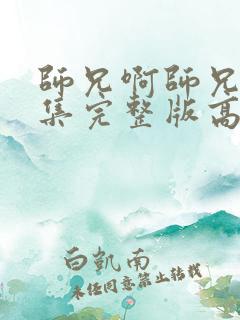 師兄啊師兄
集完整版高
白凱南
未經同意禁止轉載